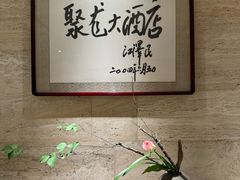 聚龙大酒店
江泽民
二〇〇四年二月五日